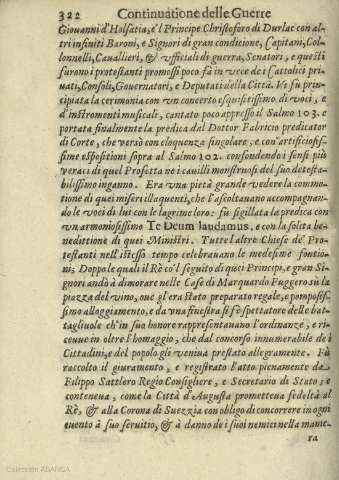 322 Continuatione delle Guerre
Giouanni d'Holsatia, e'l Principe Christoforo di Durlac con al-
tri infiniti Baroni, e Signori di gran conditione, Capitani, Col-
lonnelli, Cauallieri, & vfficiali di guerra, Senatori, e questi
furono i protestanti promossi poco fà in vece de i Cattolici pri-
uati, Consoli, Gouernatori, e Deputati della Città. Vi fù prin-
cipiata la cerimonia con vn concerto esquisitissimo di voci, e
d'instromenti musicali, cantato poco appresso il Salmo 103. e
portata finalmente la predica dal Dottor Fabricio predicator
di Corte, che versò con eloquenza singolare, e con'artificiosis-
sime espositioni sopra al Salmo 102. confondendo i sensi più
veraci di quel Profetta ne i cauilli monstruosi del suo detesta-
bilissimo inganno. Era vna pietà grande vedere la commo-
tione di quei miseri illaquenti, che l'ascoltauano accompagnan-
do le voci di lui con le lagrime loro: fù sigillata la predica con
vn armoniosissimo Te Deum laudamus, e con la solita be-
nedittione di quei Ministri. Tutte l'altre Chiese de' Pro-
testanti nell'istesso tempo celebrauano le medesime fontio-
ni; Doppo le quali il Rè co'l seguito di quei Principi, e gran Si-
gnori andò à dimorare nelle Case di Marquardo Fuggero sù la
piazza del vino, oue gl'era stato preparato regale, e pomposis-
simo alloggiamento, e da vna finestra si fè spettatore delle bat-
tagliuole ch'in suo honore rappresentauano l'ordinanze, e ri-
ceuue in oltre l'homaggio, che dal concorso innumerabile de i
Cittadini, e del popolo gli veniua prestato allegramente. Fù
raccolto il giuramento, e registrato l'atto pienamente da
Filippo Sattlero Regio Consigliere, e Secretario di Stato; e
conteneua, come la Città d'Augusta prometteua fedeltà al
Rè, & alla Corona di Suezzia con obligo di concorrere in ogni
euento à suo seruitio, & à danno de i suoi nemici nella manie-
ra
Colección ABANCA